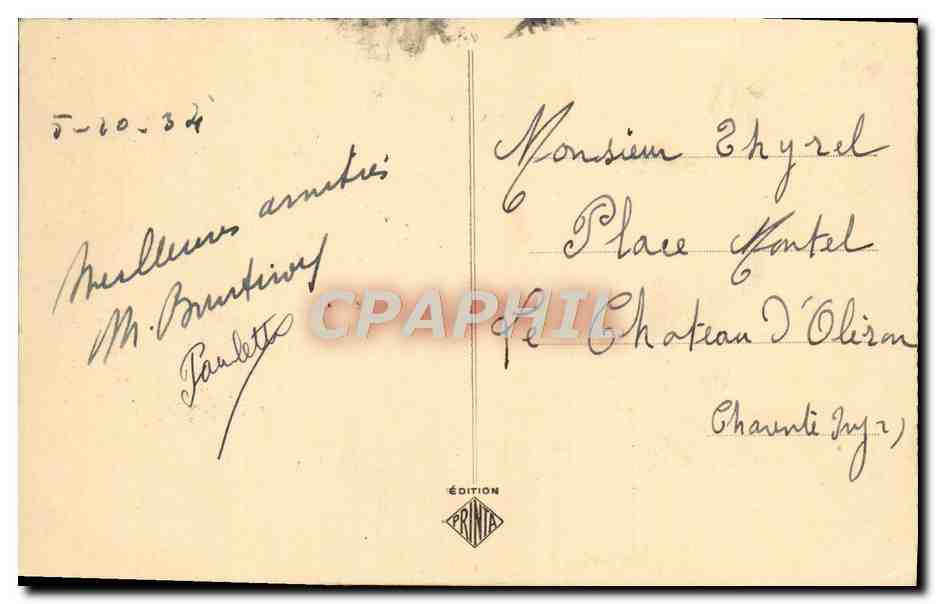 5-10-34
Meilleures amitiés
M.
Paulette
Monsieur Thyrel
Place Montel
Le Chateau d'Oléron
Charente Infre)
CPAPHIL
ÉDITION
PRINTA